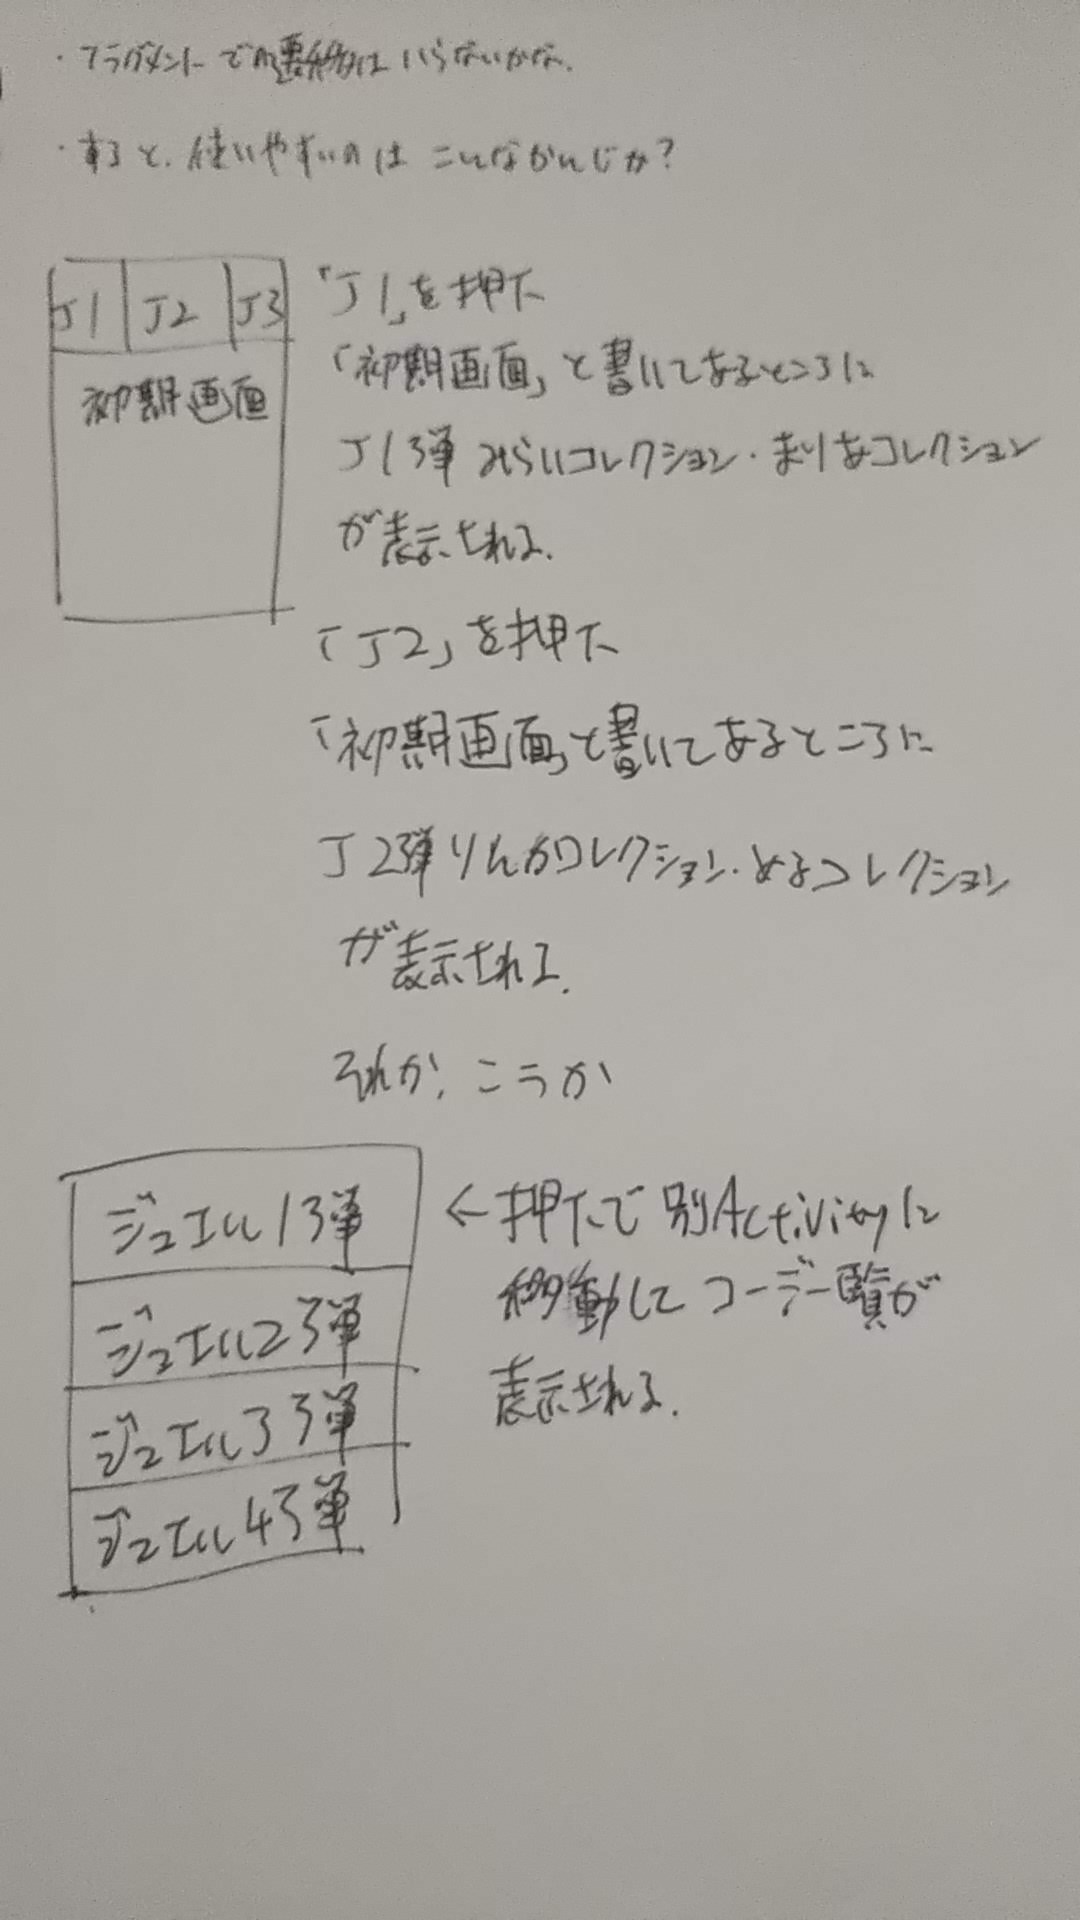 ・フラグメントでの遷移はいらないかな.
・すると、使いやすいのは こんなかんじか?
J1 J2 J3
初期画面
「J1」を押下
「初期画面」と書いてあるところに
J1弾 みらいコレクション・まりあコレクション
が表示される.
「J2」を押下
「初期画面」と書いてあるところに
J2弾りんかコレクション・めるコレクション
が表示される.
それか、こうか
ジュエル1弾
ジュエル2弾
ジュエル3弾
ジュエル4弾
←押下で別Activityに
移動してコーデ一覧が
表示される.